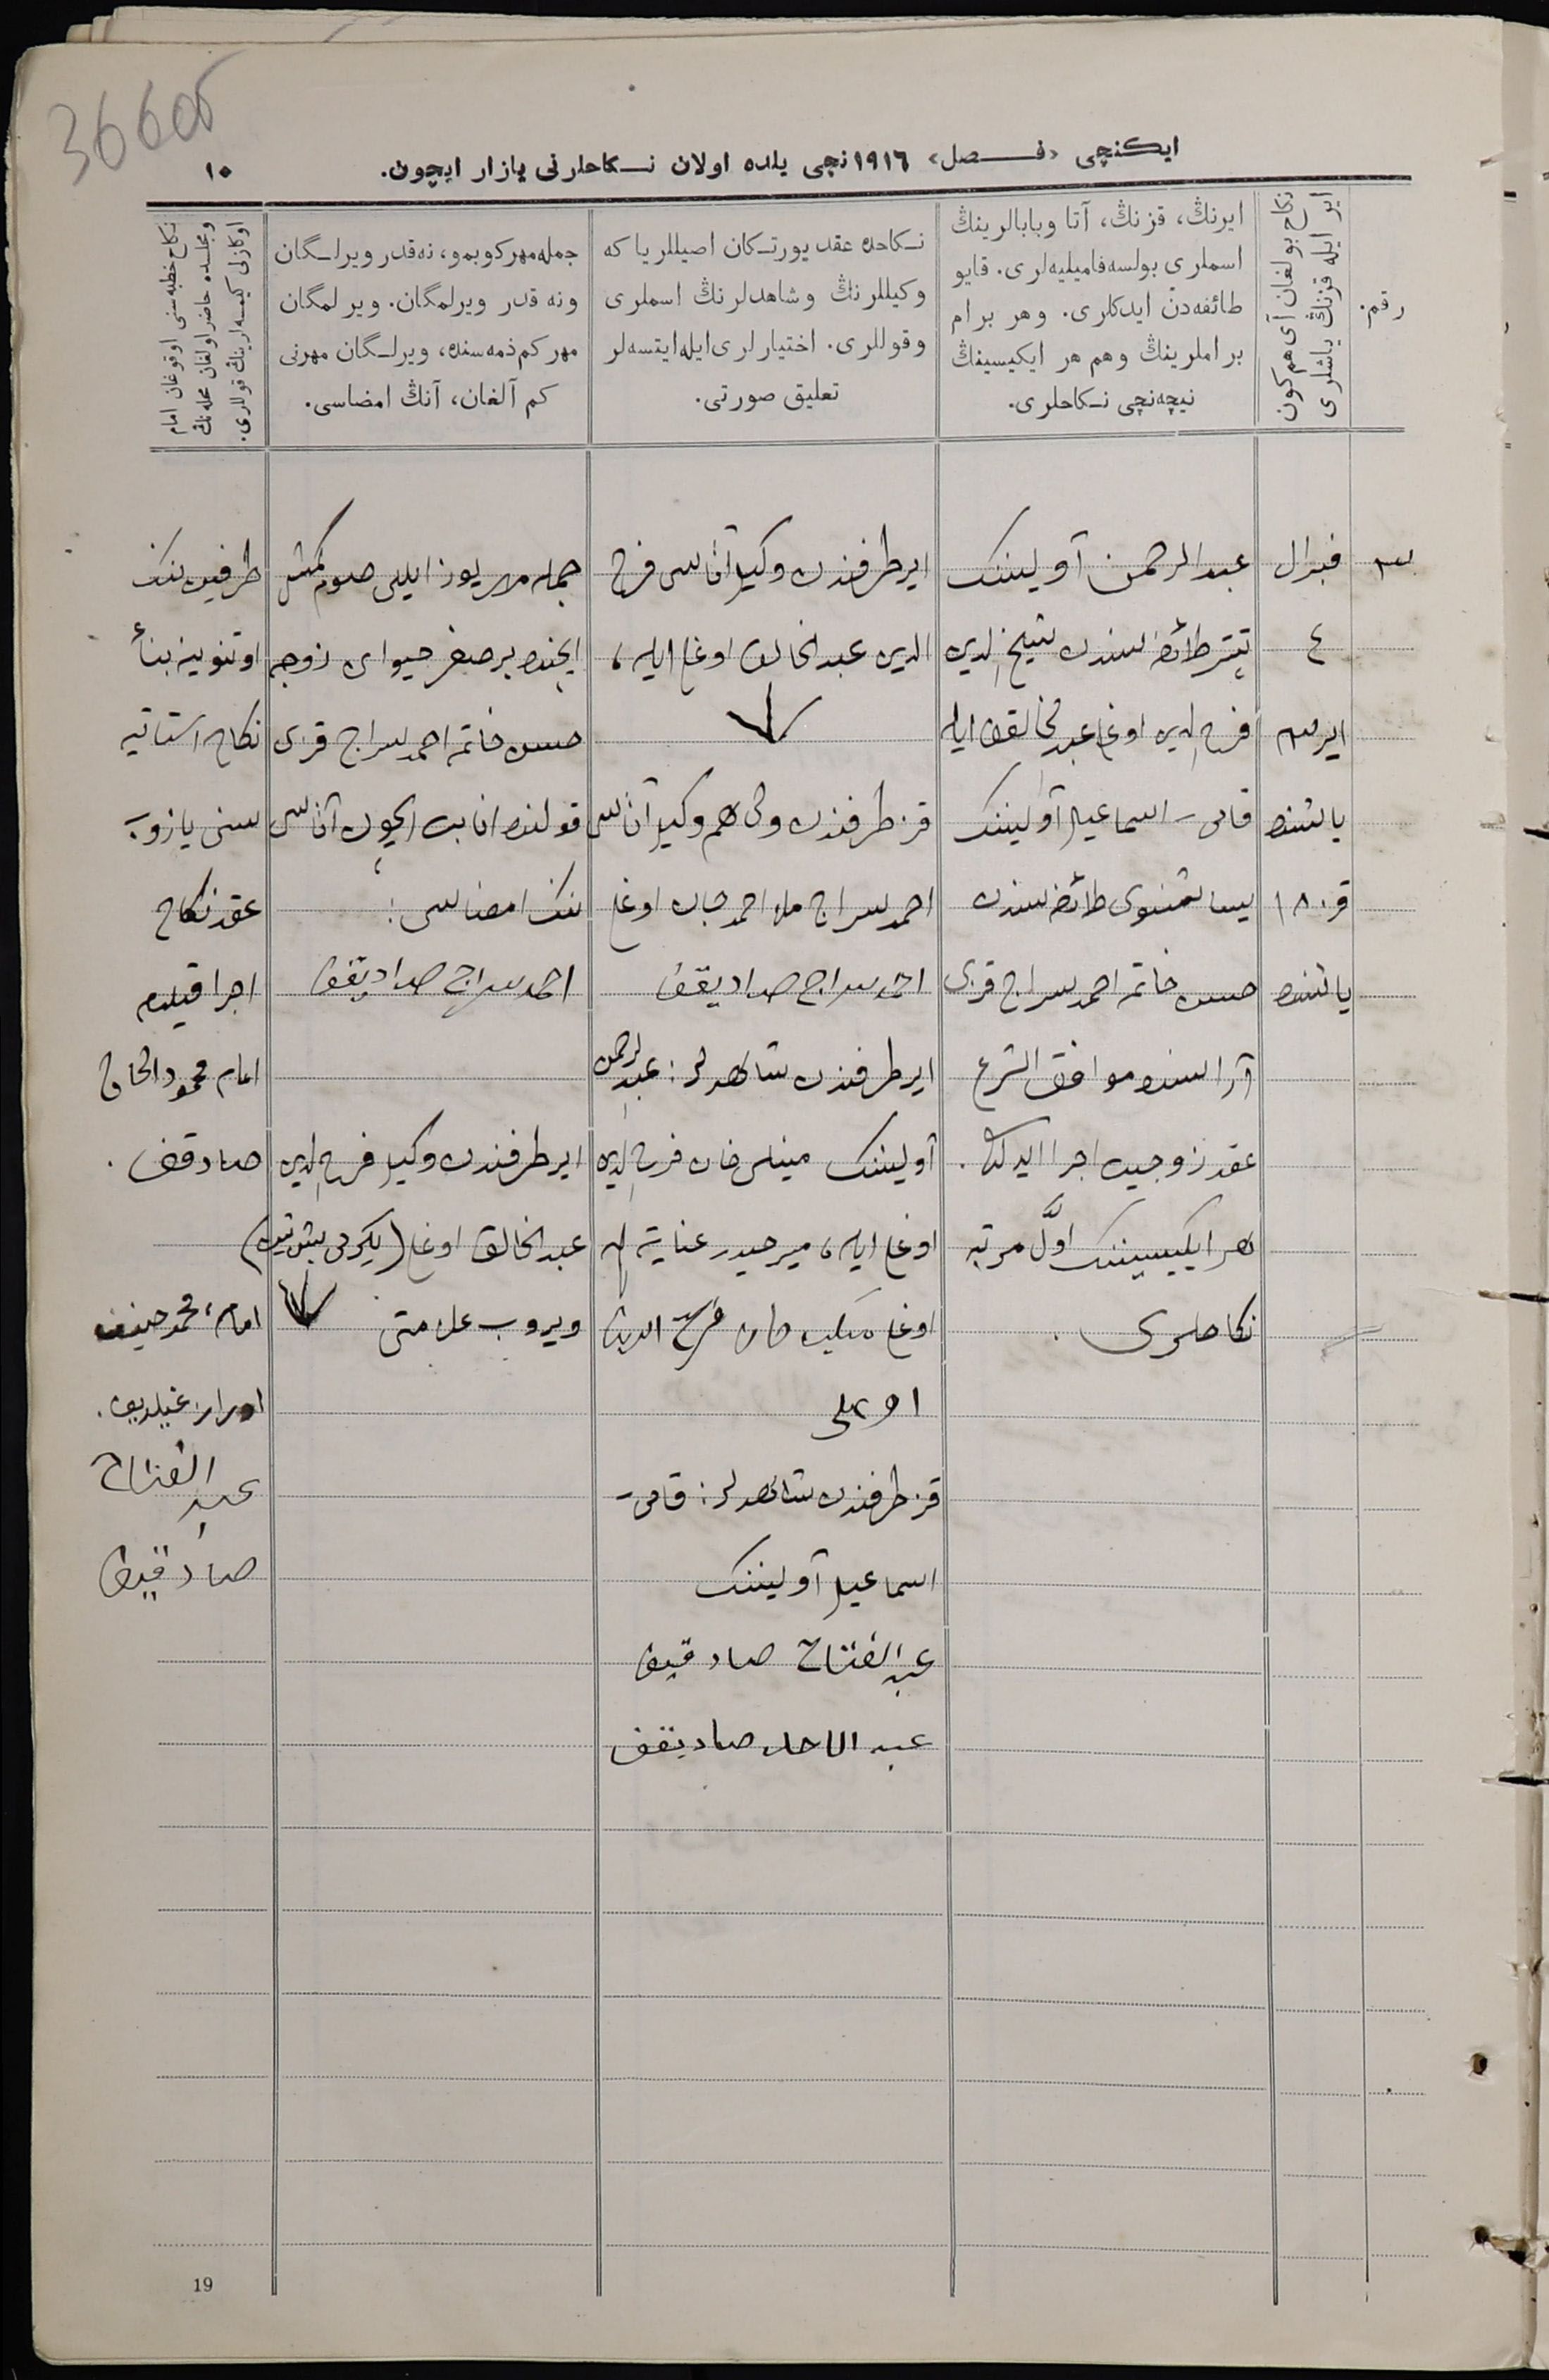 366об
ايكنچی «فــصل» ١٩١٦ نچی يلده اولان نــكاحلرنی يازار ايچون.
١٠
رقم.
نكاح بولغان آی هم كون
اير ايله قزنڭ ياشلری
ايرنڭ، قزنڭ، آتا وبابالرينڭ
اسملری بولسه فاميليه‌لری. قايو
طائفه‌دن ايدكلری. وهر برام
بر املرينڭ وهم هر ايكيسينڭ
نيچه‌نچی نــكاحلری.
نــكاحده عقد يورتــكان اصيللر يا كه
وكيللرنڭ وشاهدلرنڭ اسملری
وقوللری. اختيارلری ايله ايتسه‌لر
تعليق صورتی.
جمله مهر كوبمو، نه قدر ويرلــگان
ونه قدر ويرلمگان. ويرلمگان
مهر كم ذمه سنده، ويرلــگان مهرنی
كم آلغان، آنڭ امضاسی.
نكاح خطبه سنی اوقوغان امام
ومجلسده حاضر اولغان محله‌نڭ
اوكازلی كيمسه‌لرينڭ قوللری.
٣
فبرال
٤
اير ٢٣
ياشنده
قز ١٨
ياشنده
عبد الرحمن آولیننك
تپتر طائفه سندن شيخ الدين
فرح الدين اوغلی عبدالخالق ايله
قامی - اسماعيل آولیننك
ياساشنوی طائفه سندن
حسن خاتمه احمد سراج قزی
آراسنده موافق الشرع
عقد زوجيت اجرا ايدلدی.
هر ايكيسيننك اوّل مرتبه
نكاحلری.
ايرطرفندن وكيل آتاسی فرح
الدين عبد الخالق اوغلی ايله،
قز طرفندن ولی هم وكيل آتاسی
احمد سراج ملا احمد جان اوغلی
احمد سراج صاديقف
ايرطرفندن شاهدلر: عبد الرحمن
آولیننك مينلی خان فرح الدين
اوغلی ايله، مير حيدر عناية الله
اوغلی منلی خان فرح الدين
اوغلی
قز طرفندن شاهدلر: قامی -
اسماعيل آولیننك
عبد الفتاح صادقيف
عبد الاحد صاديقف
جمله مهر يوز ايللی صوم كمش
ايچنده بر صغر حيوان زوجه
حسن خاتمه احمد سراج قزی
قولنده انابت ايچون آتاسی
ننك امضاسی:
احمد سراج صاديقف
اير طرفندن وكيل فرح الدين
عبد الخالق اوغلی (يكرمی بش تين)
ويروب علامتی
طرفين ننك
اوتنوينه بنأ
نكاح استاتيه
سنی يازوب
عقد نكاح
اجرا قيلدم
امام محمود الحاج
صادقف.
امام، محمد حنيف
عبد الفتاح
صادقيف
19